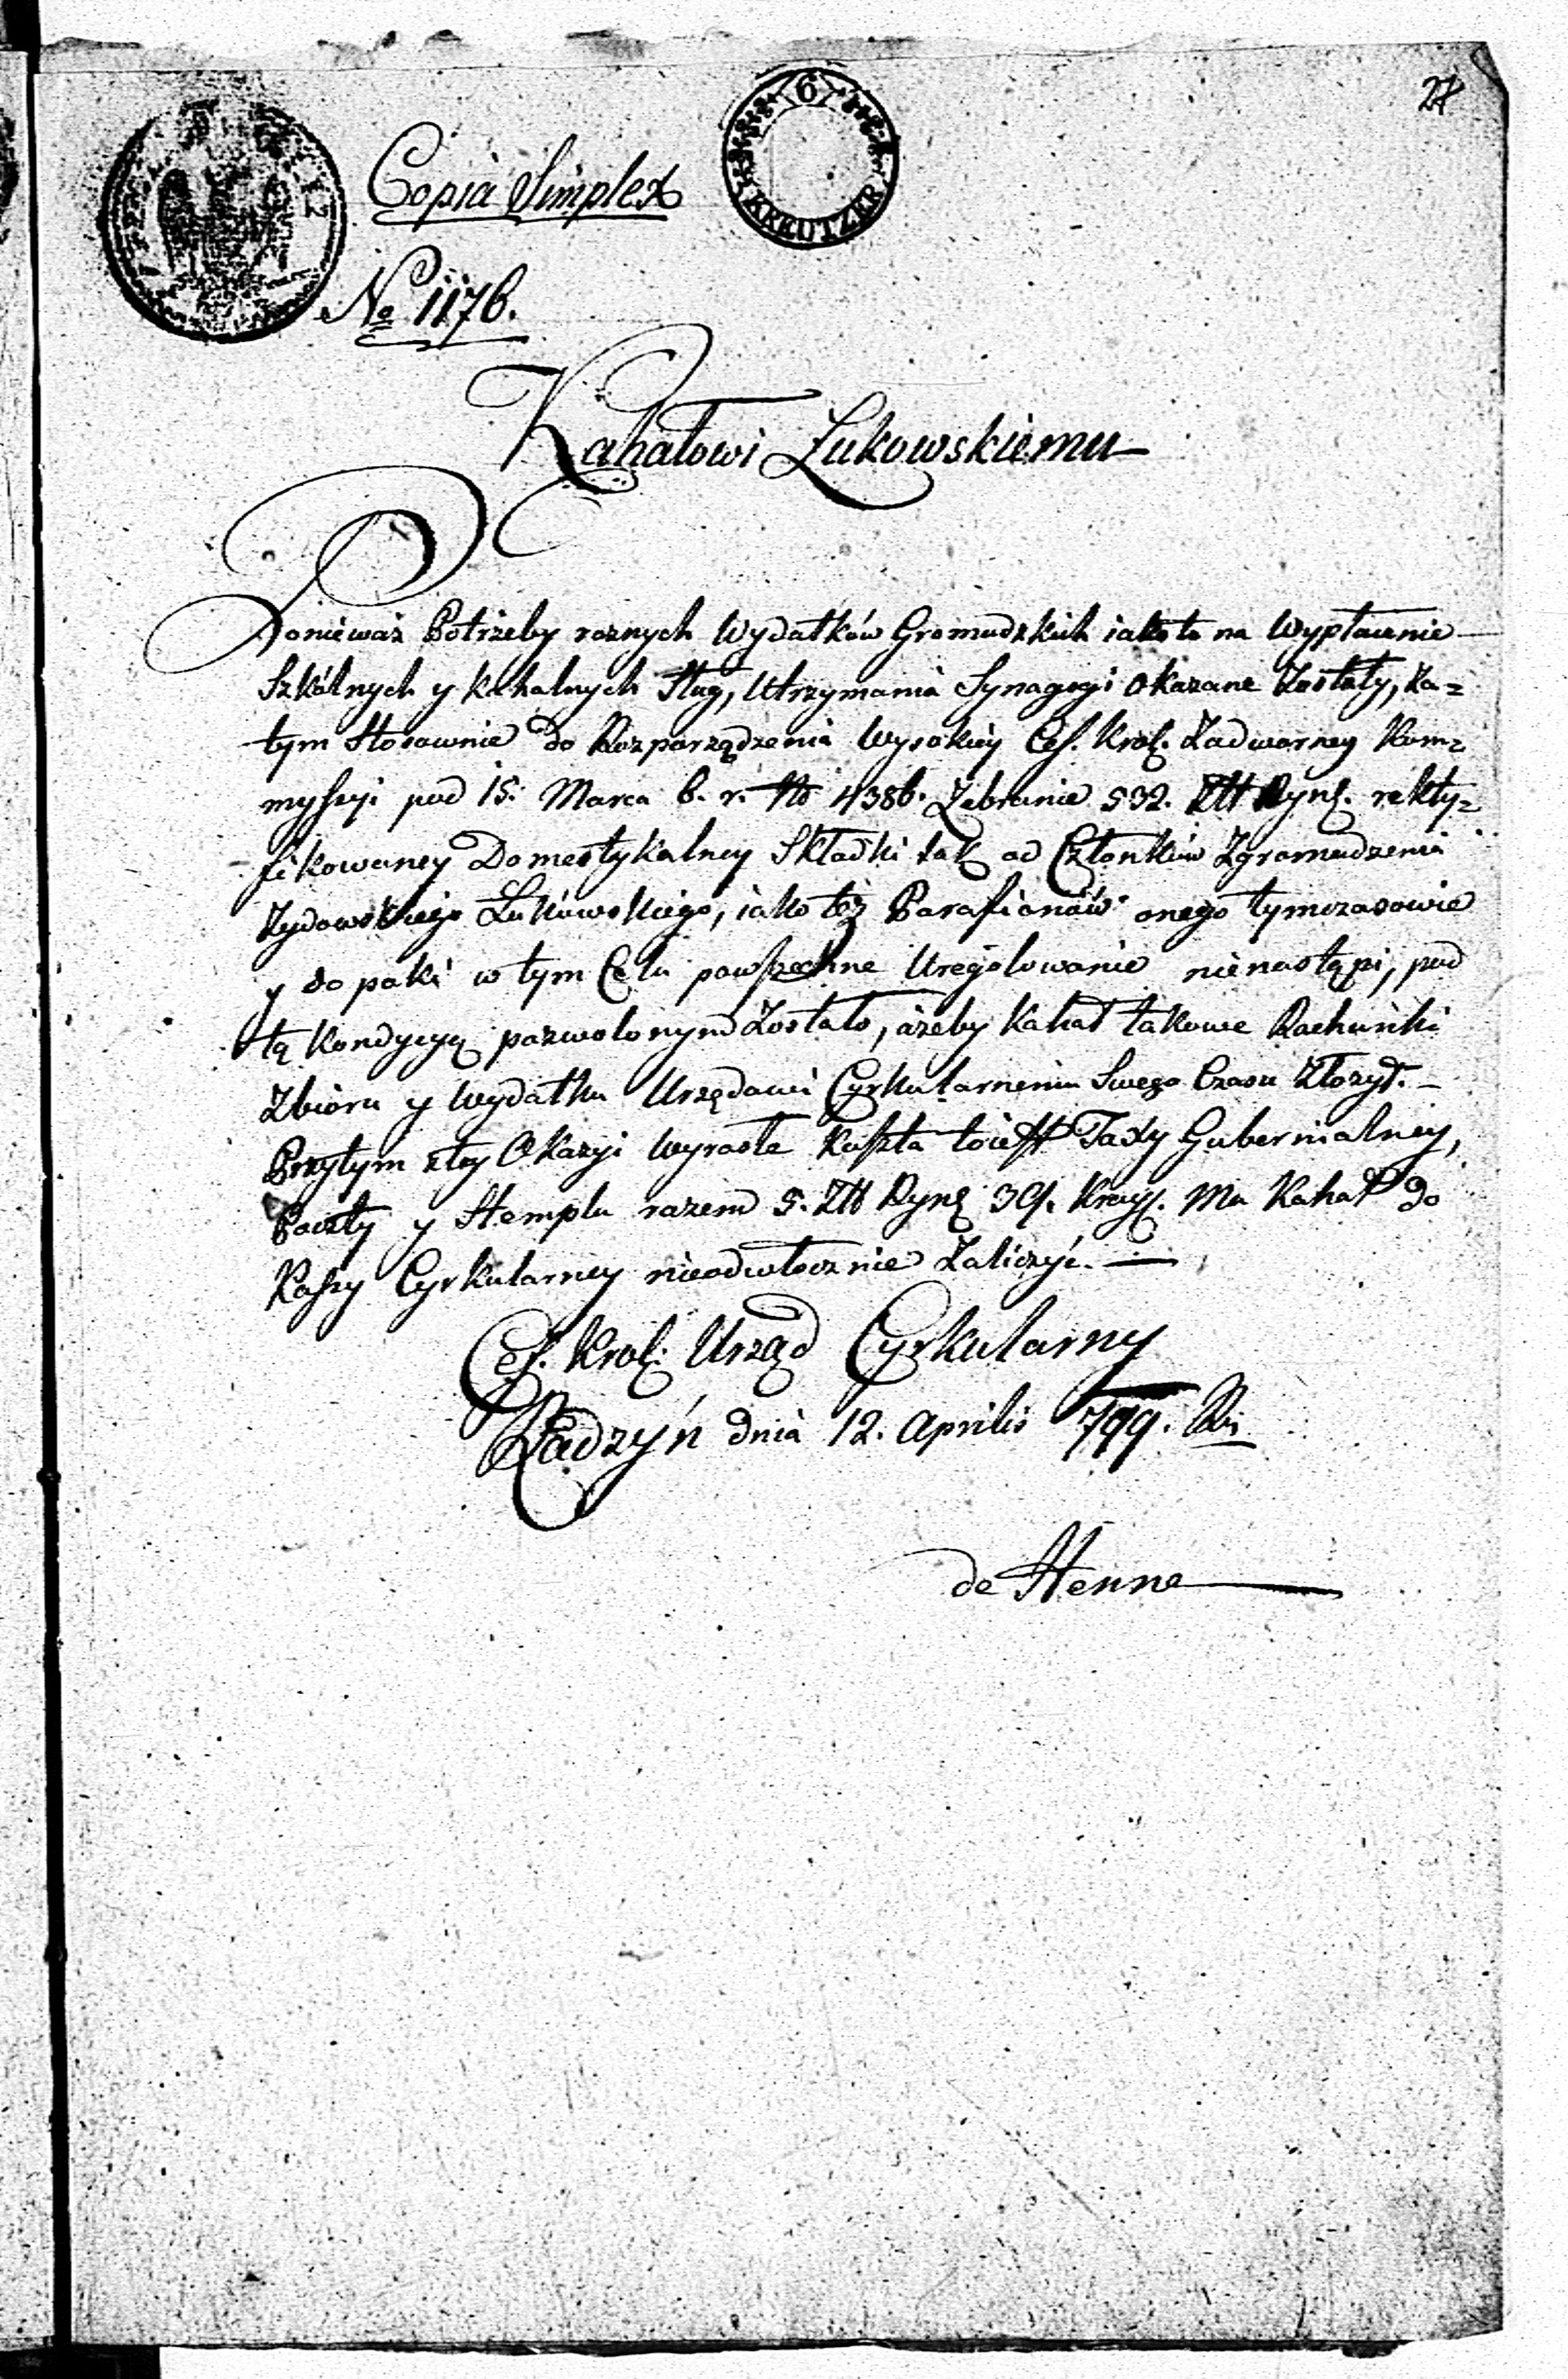 27
6
KREUTZER
Copia Simplex
No 1176.
Kahałowi Łukowskiemu
Poniewaz Potrzeby roznych Wydatków Gromadzkich iakoto na Wypłacenie
Szkólnych y kahalnych Sług, Utrzymania Synagogi okazane Zostały, za=
tym Stosownie do Rozporządzenia Wysokiey Ces. Krol. Nadworney Kom=
myssyi pod 15. Marca b. r. No 4386. Zebranie 532. Ztt Rynś. rekty=
fikowaney Domestykalney Składki tak od Członków Zgromadzenia
Zydowskiego Łukowskiego, iako też Parafianów onego tymczasowie
y do poki w tym Celu powszechne Uregolowanie nienastąpi, pod
tą kondycyą pozwolonym Zostało, ażeby Kahał takowe Rachunki
Zbioru y Wydatku Urzędowi Cyrkularnemu Swego Czasu Złozył. –
Przytym z tey Okazyi Wyrosłe Kaszta toiest Taxy Gubernialney,
Poczty y Stemplu razem 5. Ztt Rynś 39. Krayc. Ma Kahał do
Kassy Cyrkularney nieodwłocznie Zaliczyć. —
Ces. Krol. Urząd Cyrkularny
Radzyń dnia 12. Aprilis 799.
de Henne